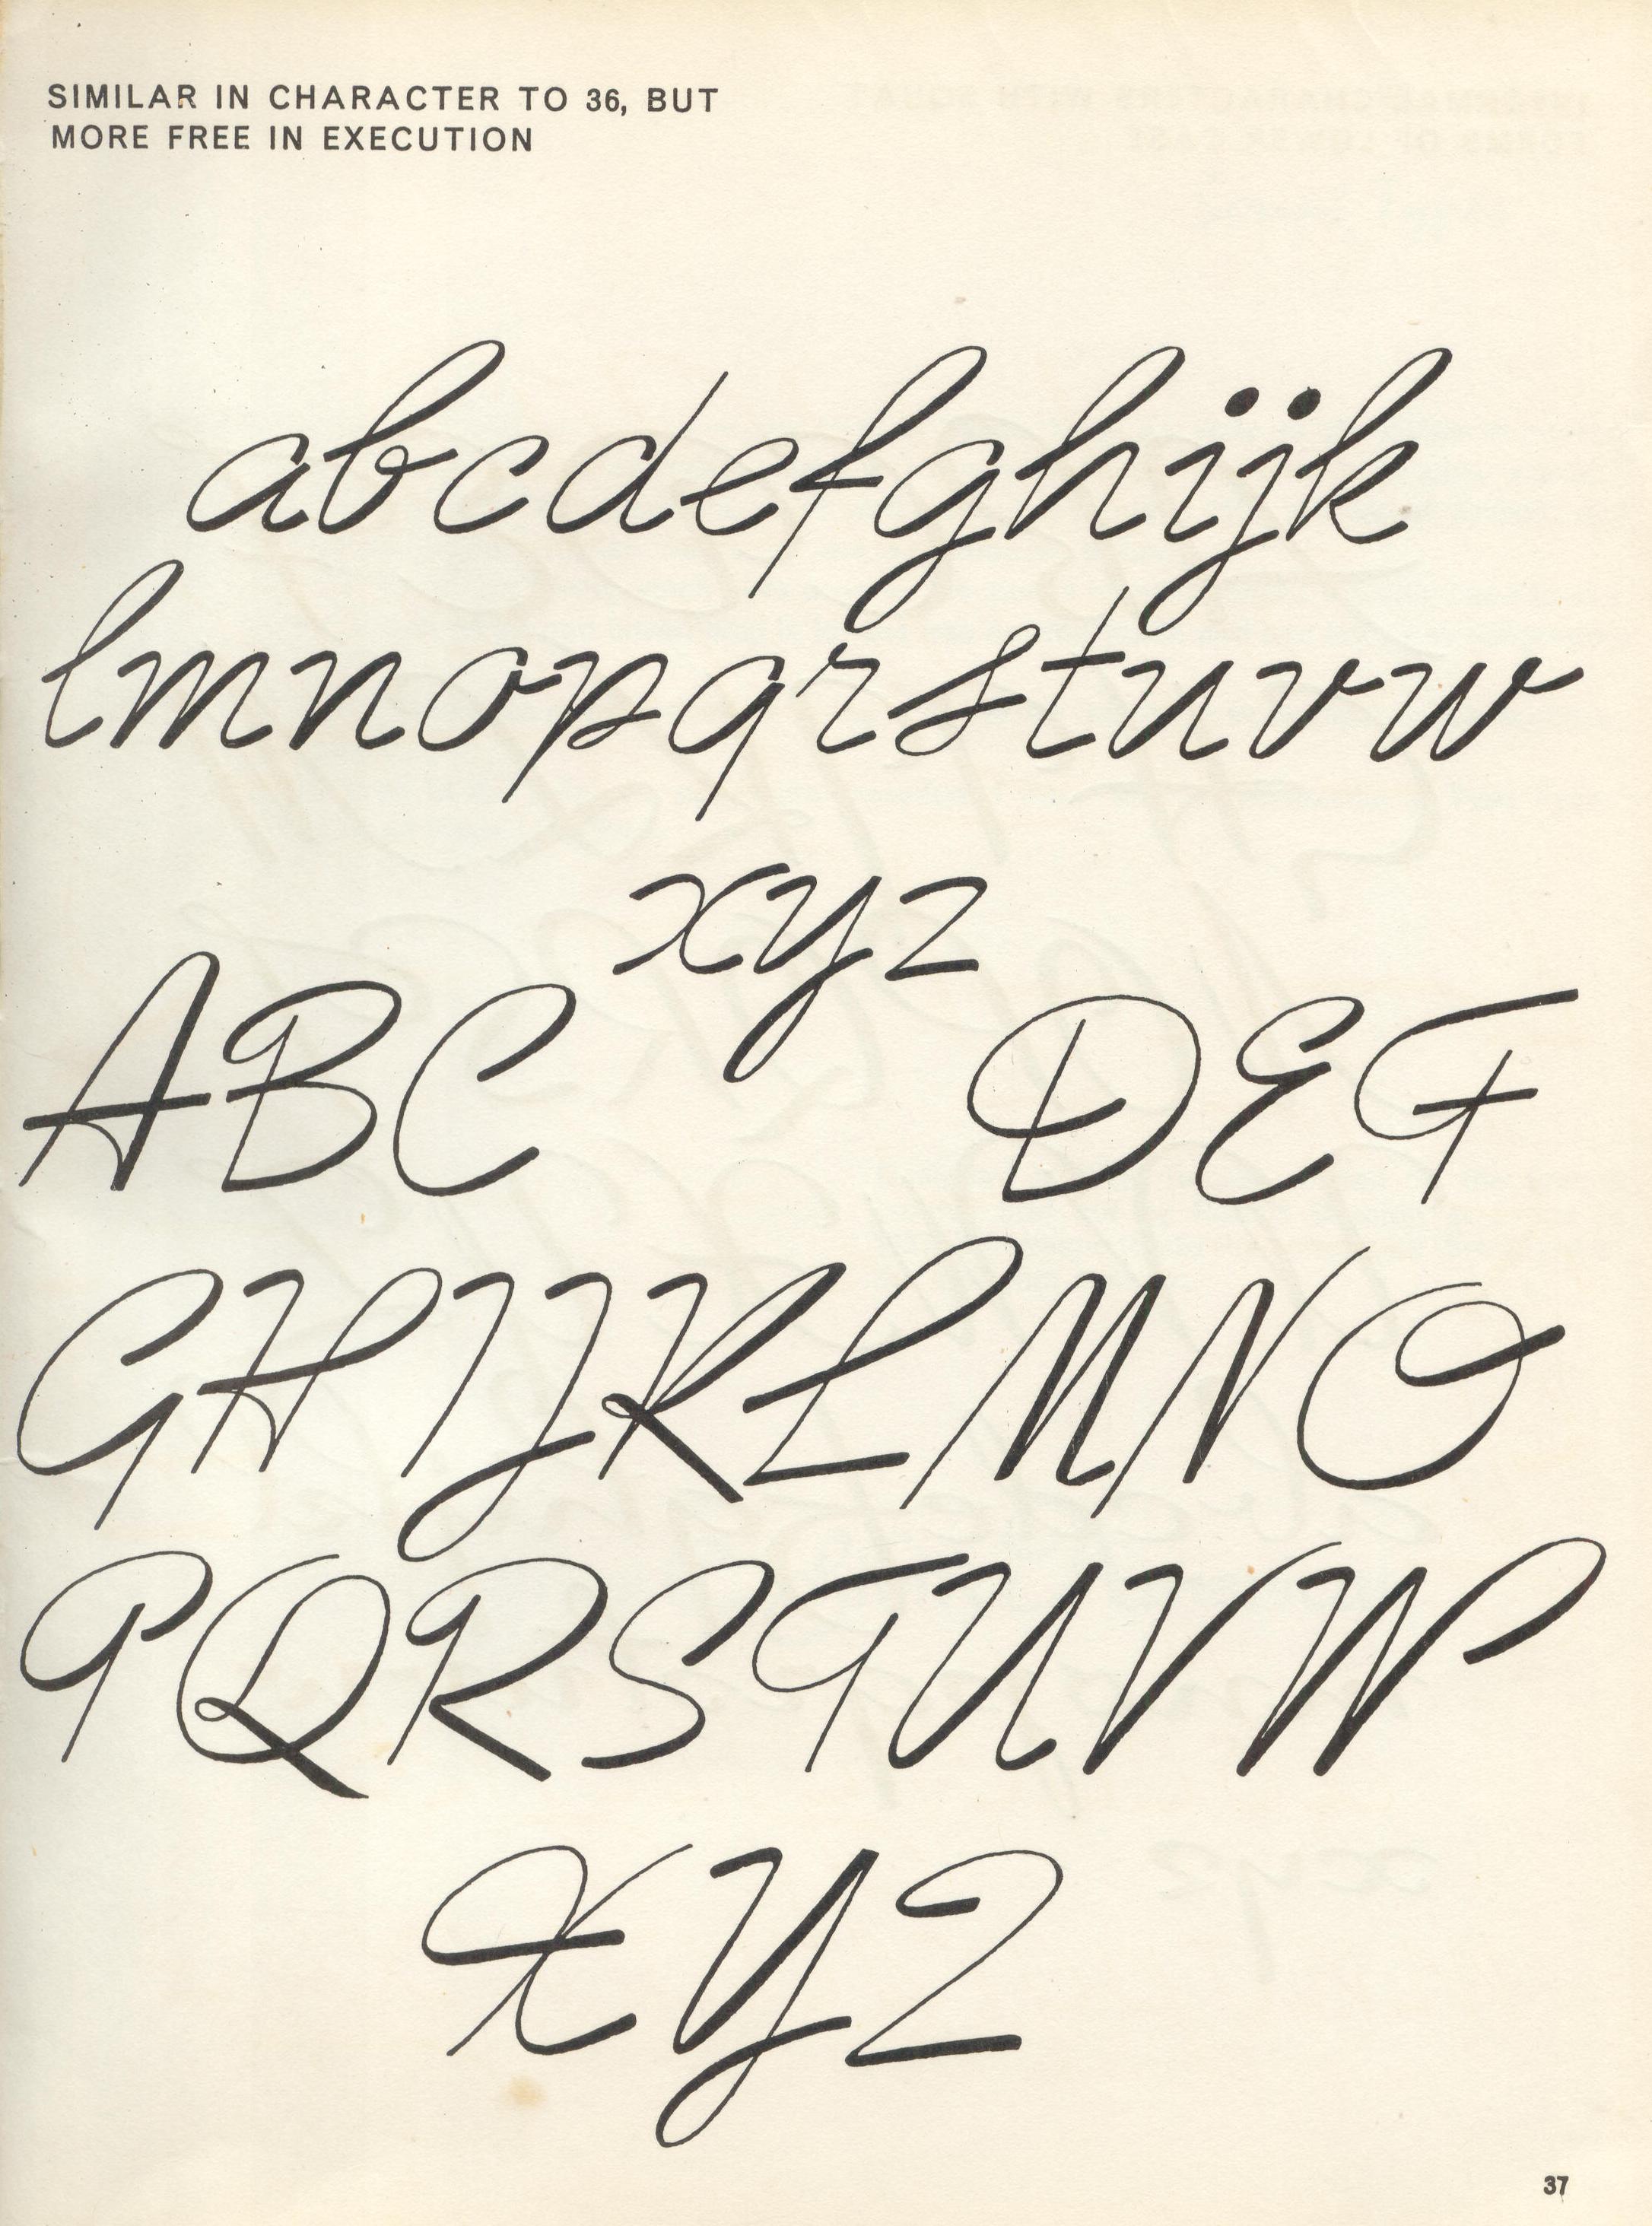 SIMILAR IN CHARACTER TO 36, BUT
MORE FREE IN EXECUTION
abcdefghijk
lmnopqrstuvw
xyz
ABC DEF
GHIJKLMNO
PQRSTUVW
XYZ
37